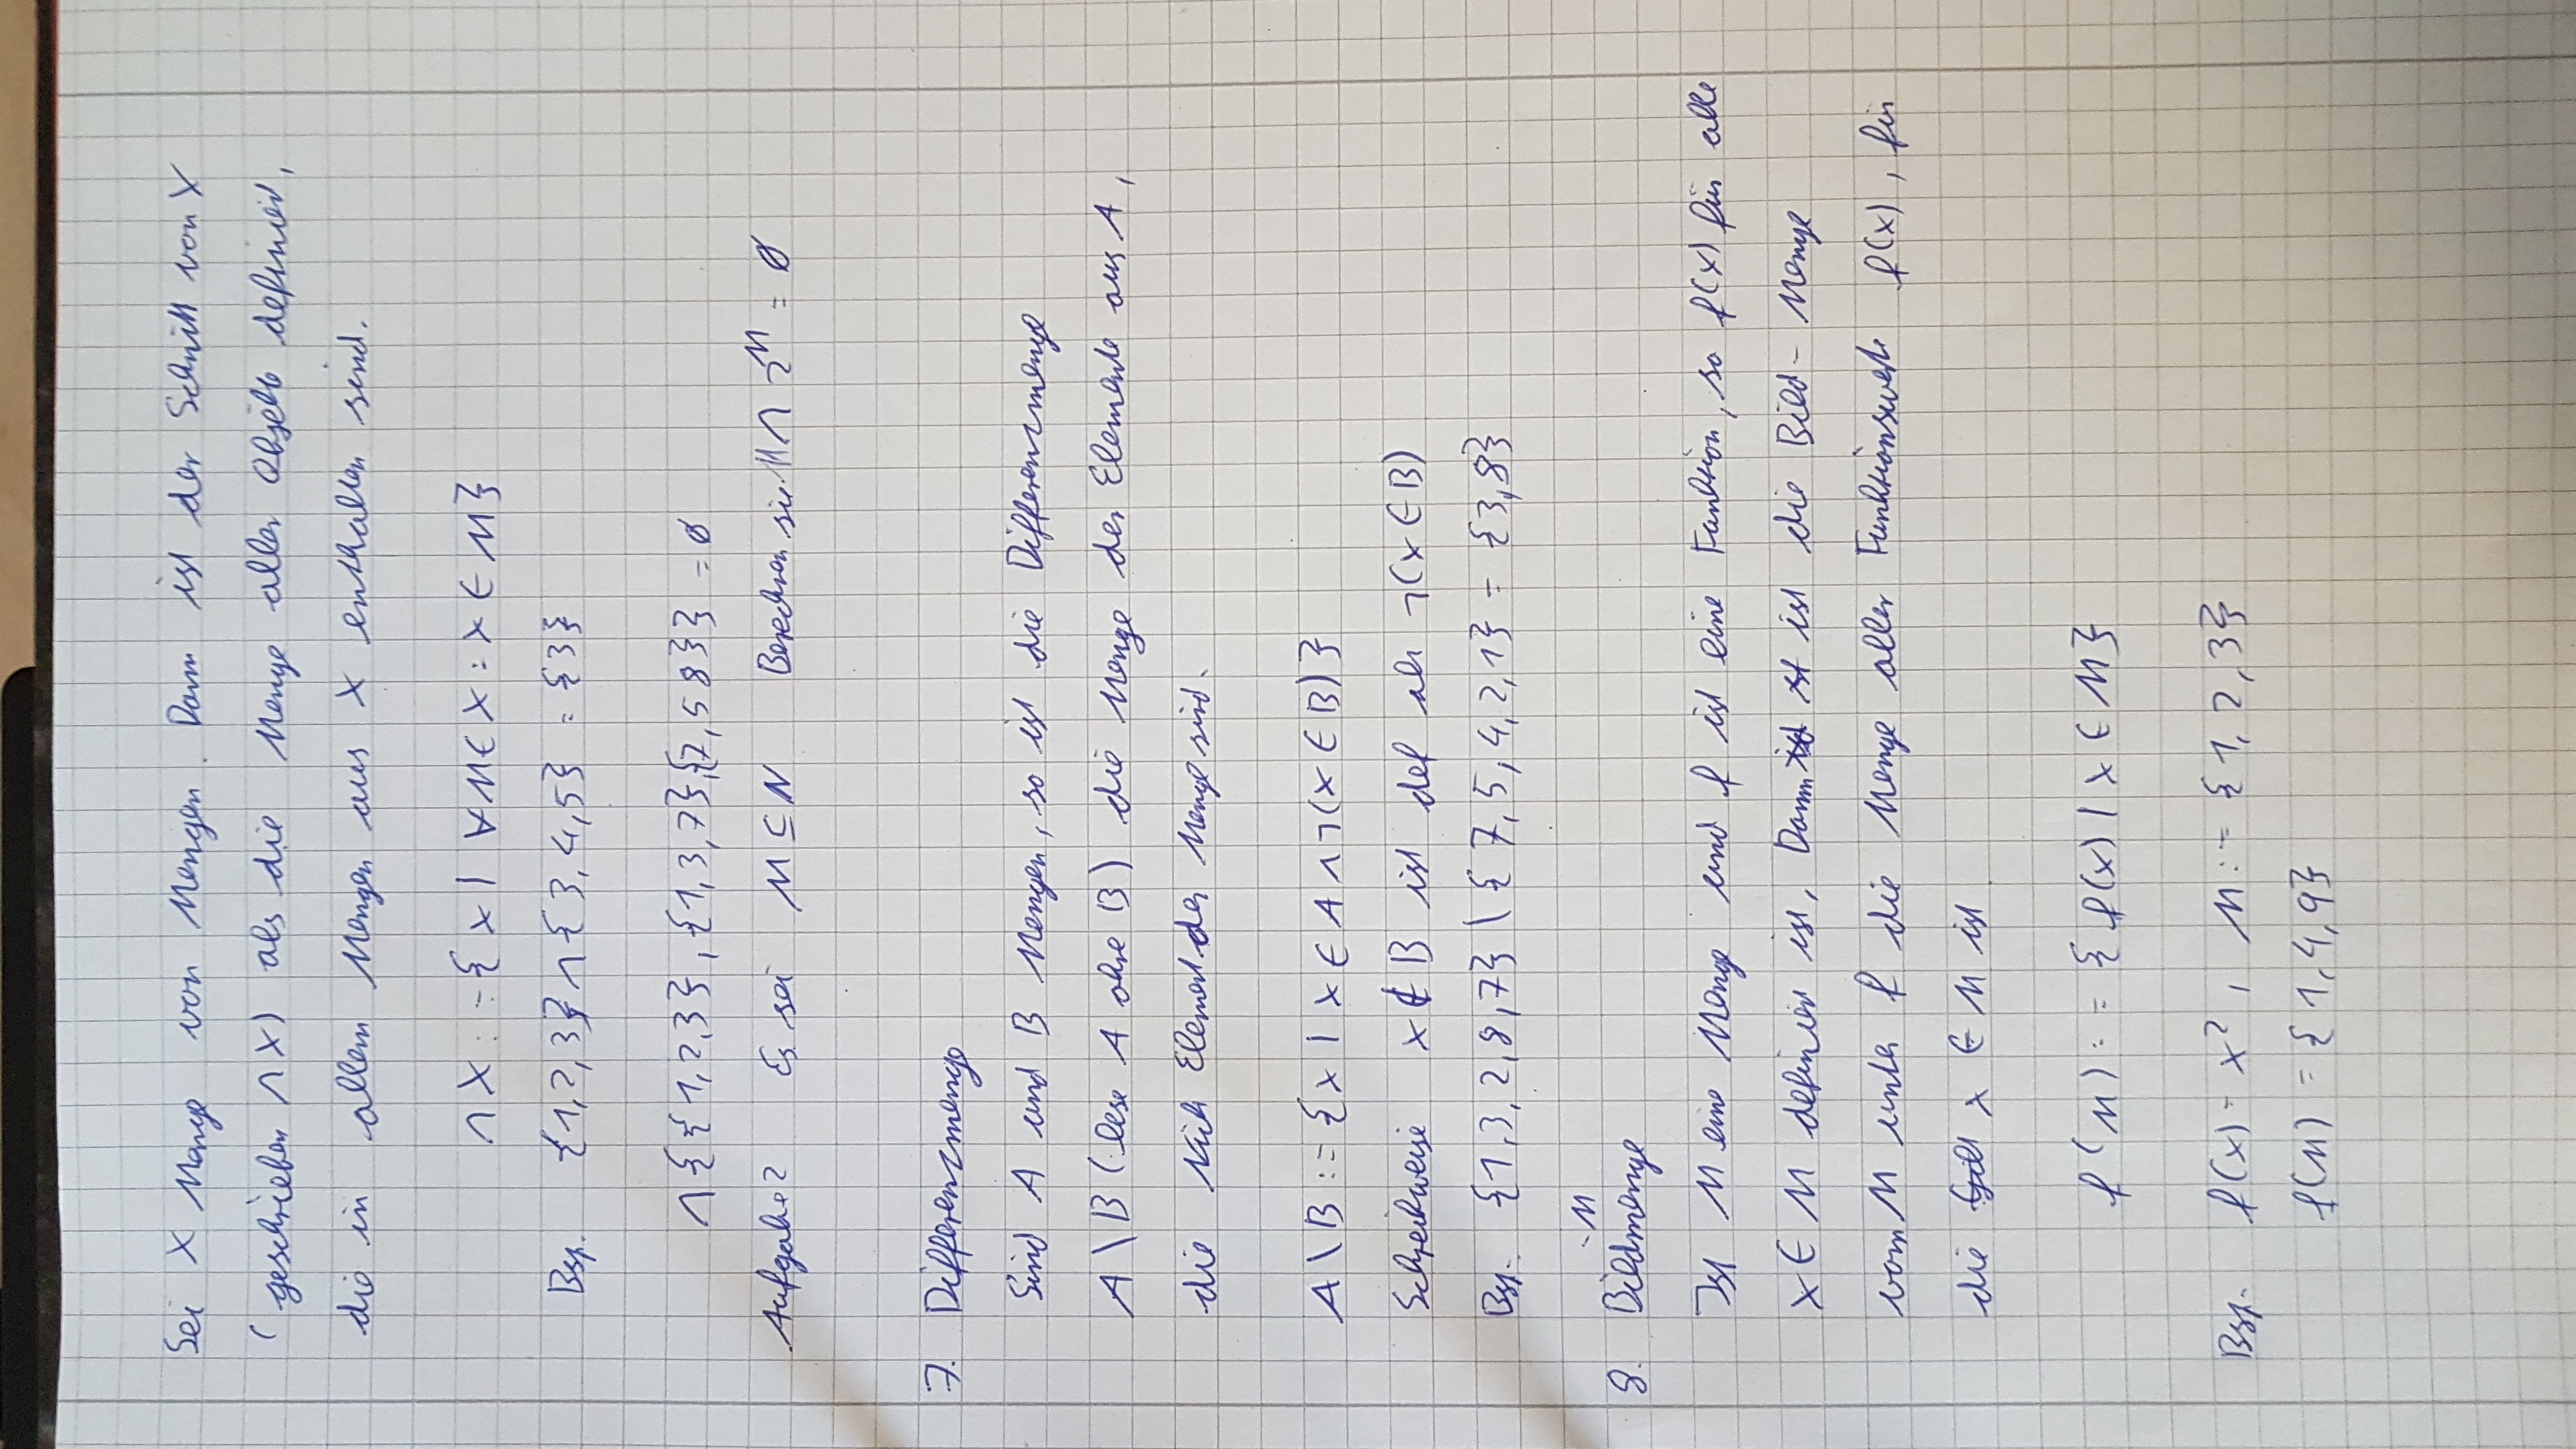 Sei X Menge von Mengen. Dann ist der Schnitt von X
(geschrieben ∩X) als die Menge aller Objekte definiert,
die in allem Mengen aus X enthalten sind.
∩X := {x | ∀M∈X : x ∈ M}
Bsp. {1,2,3} ∩ {3,4,5} = {3}
∩{{1,2,3}, {1,3,7}, {7,5 8}} = ∅
Aufgabe 2 Es sei M ⊆ N Berechnen sie ∩ 2^M = ∅
7. Differenzmenge
Sind A und B Mengen, so ist die Differenzmenge
A \ B (lese A ohne B) die Menge der Elemente aus A,
die Nich Element der Menge sind.
A \ B := {x | x ∈ A ∧ ¬(x ∈ B)}
Schreibweise x ∉ B ist def als ¬(x ∈ B)
Bsp. {1,3,2,8,7} \ {7,5,4,2,1} = {3,8}
-M
8. Bildmenge
Ist M eine Menge und f ist eine Funktion, so f(x) für alle
x ∈ M definiert ist, Dann ist die Bild-Menge
vom M unter f die Menge aller Funktionswerte f(x), für
die x ∈ M ist.
f(M) := {f(x) | x ∈ M}
Bsp. f(x) = x², M := {1,2,3}
f(M) = {1,4,9}